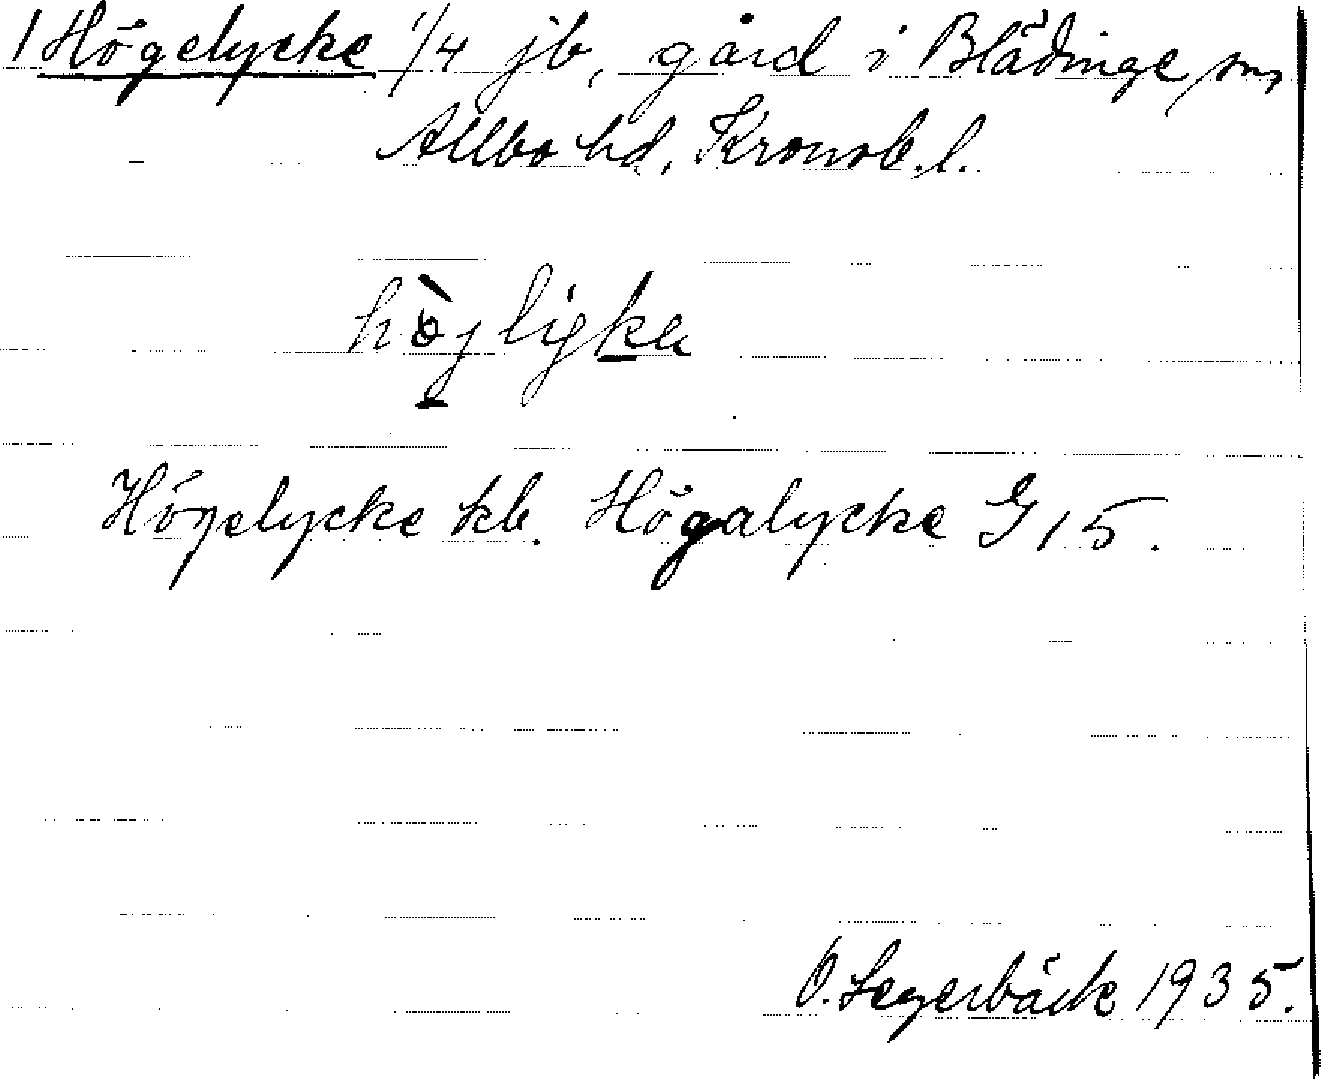 1 Högelycke 1/4 jb, gård i Blädinge sn,
Allbo hd, Kronob. l.
hö̀jlig̣ka
Högelycke kb. Högalycke G 15.
O. Segerbäck 1935.